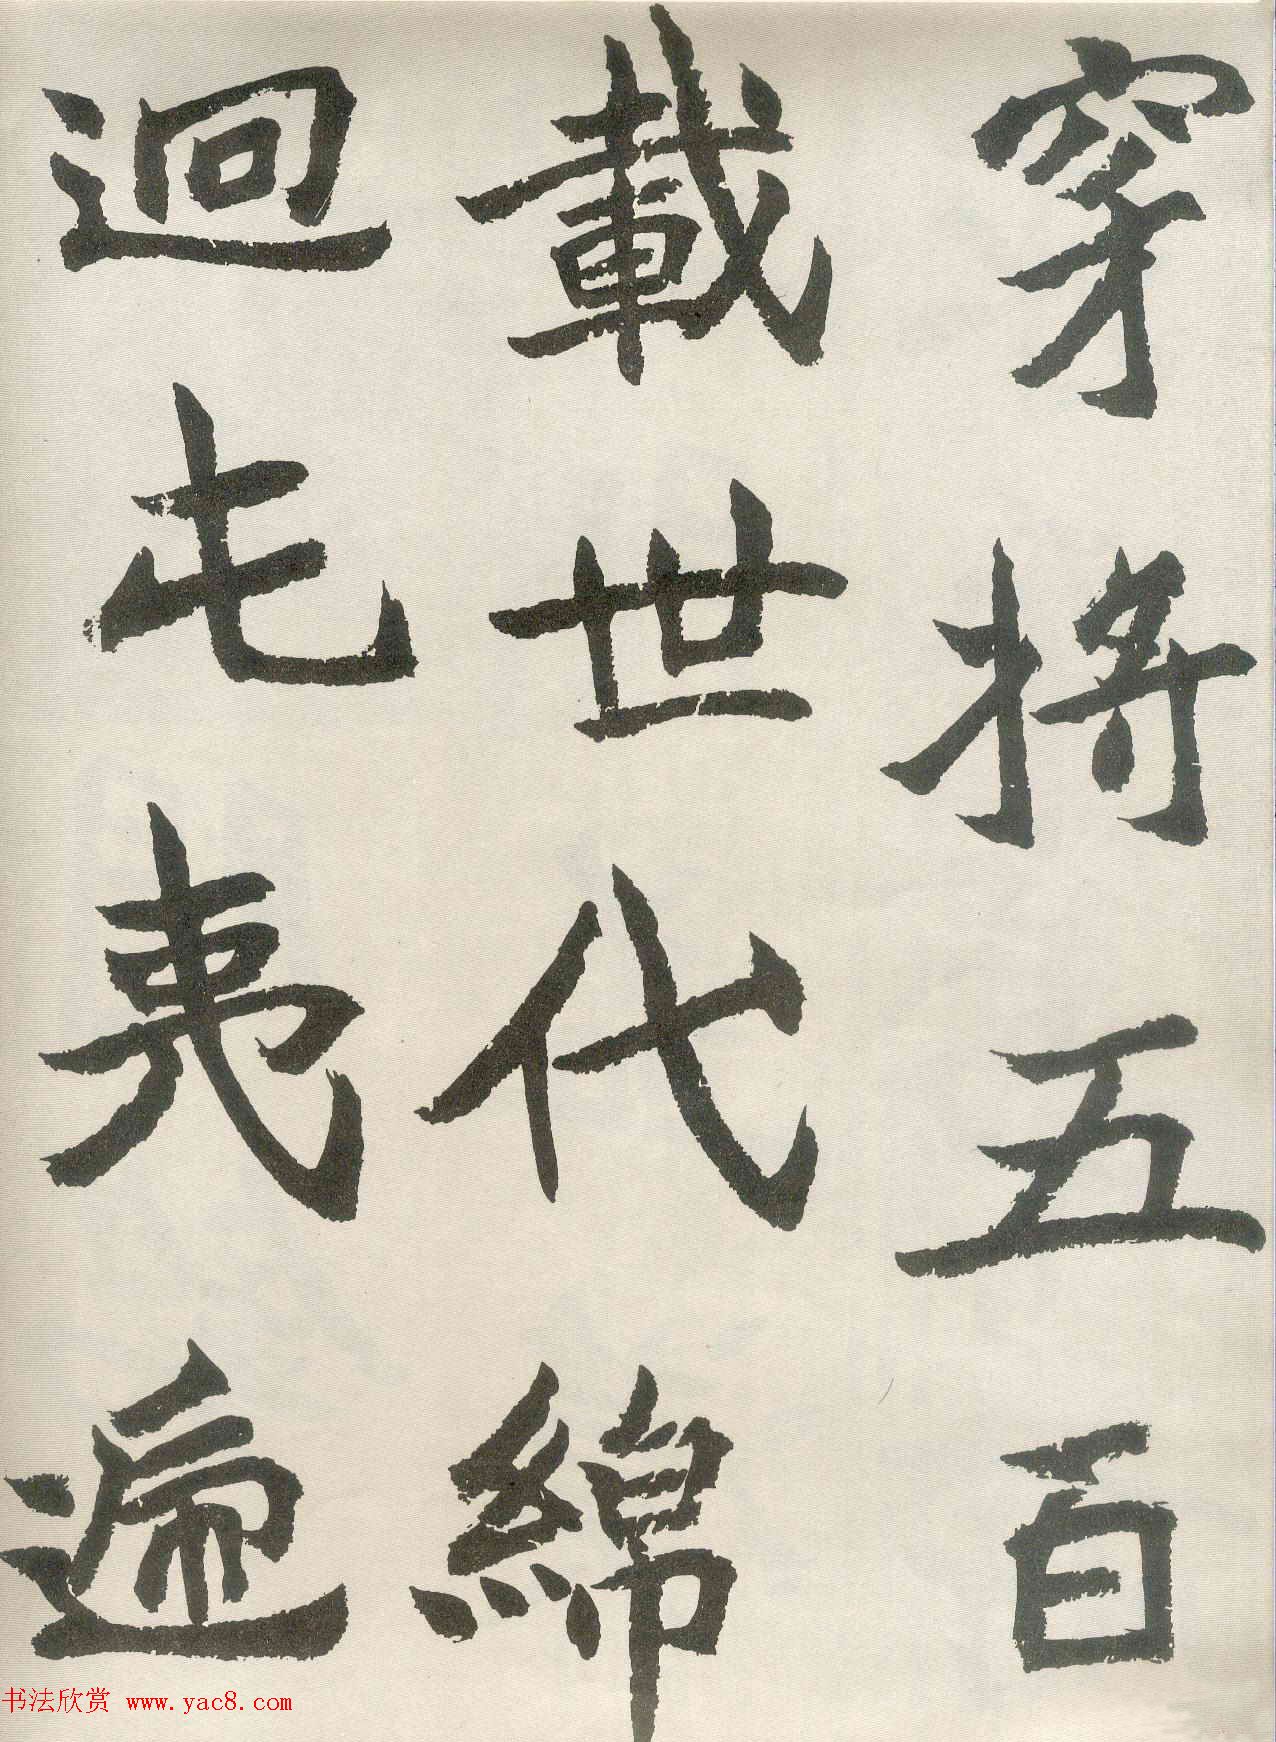 穿将五百
載世代綿
迴屯夷遍
书法欣赏 www.yac8.com